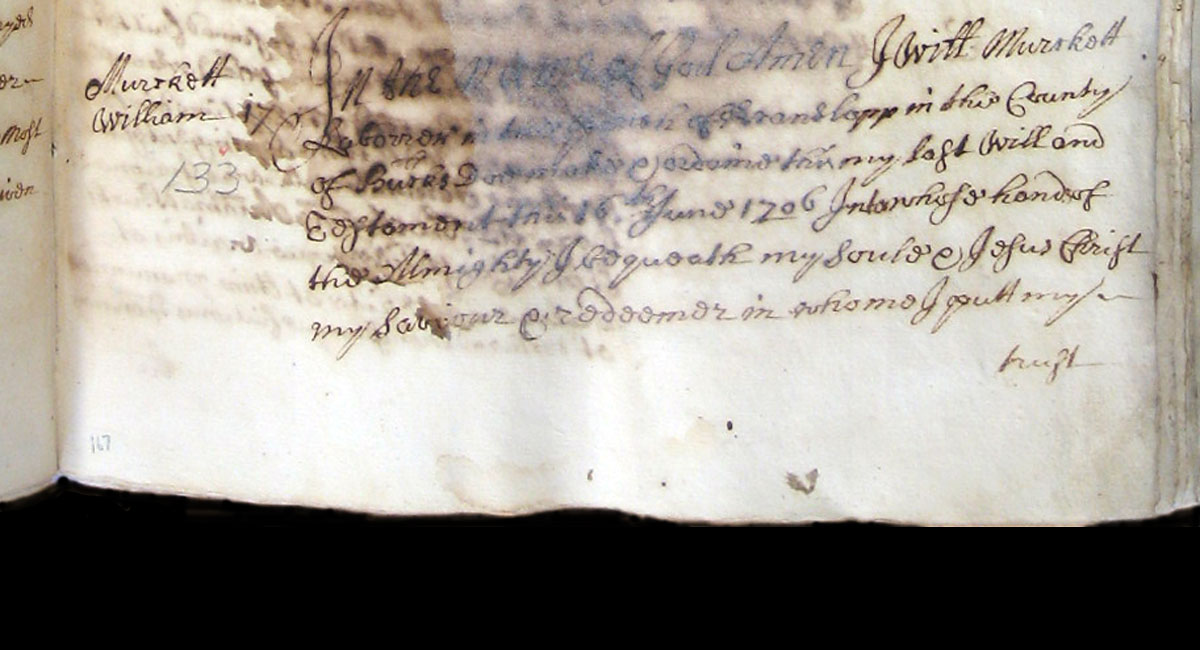 In the Name of God Amen I Will Murckett
Murckett
William 17
Laborer in the of Hanslapp in the County
133
of Bucks Doe make & ordaine this my last Will and
Testament this 16th June 1706 Into whose hands of
the Almighty I bequeath my Soule & Jesus Christ
my Saviour & redeemer in whome I putt my
trust
167